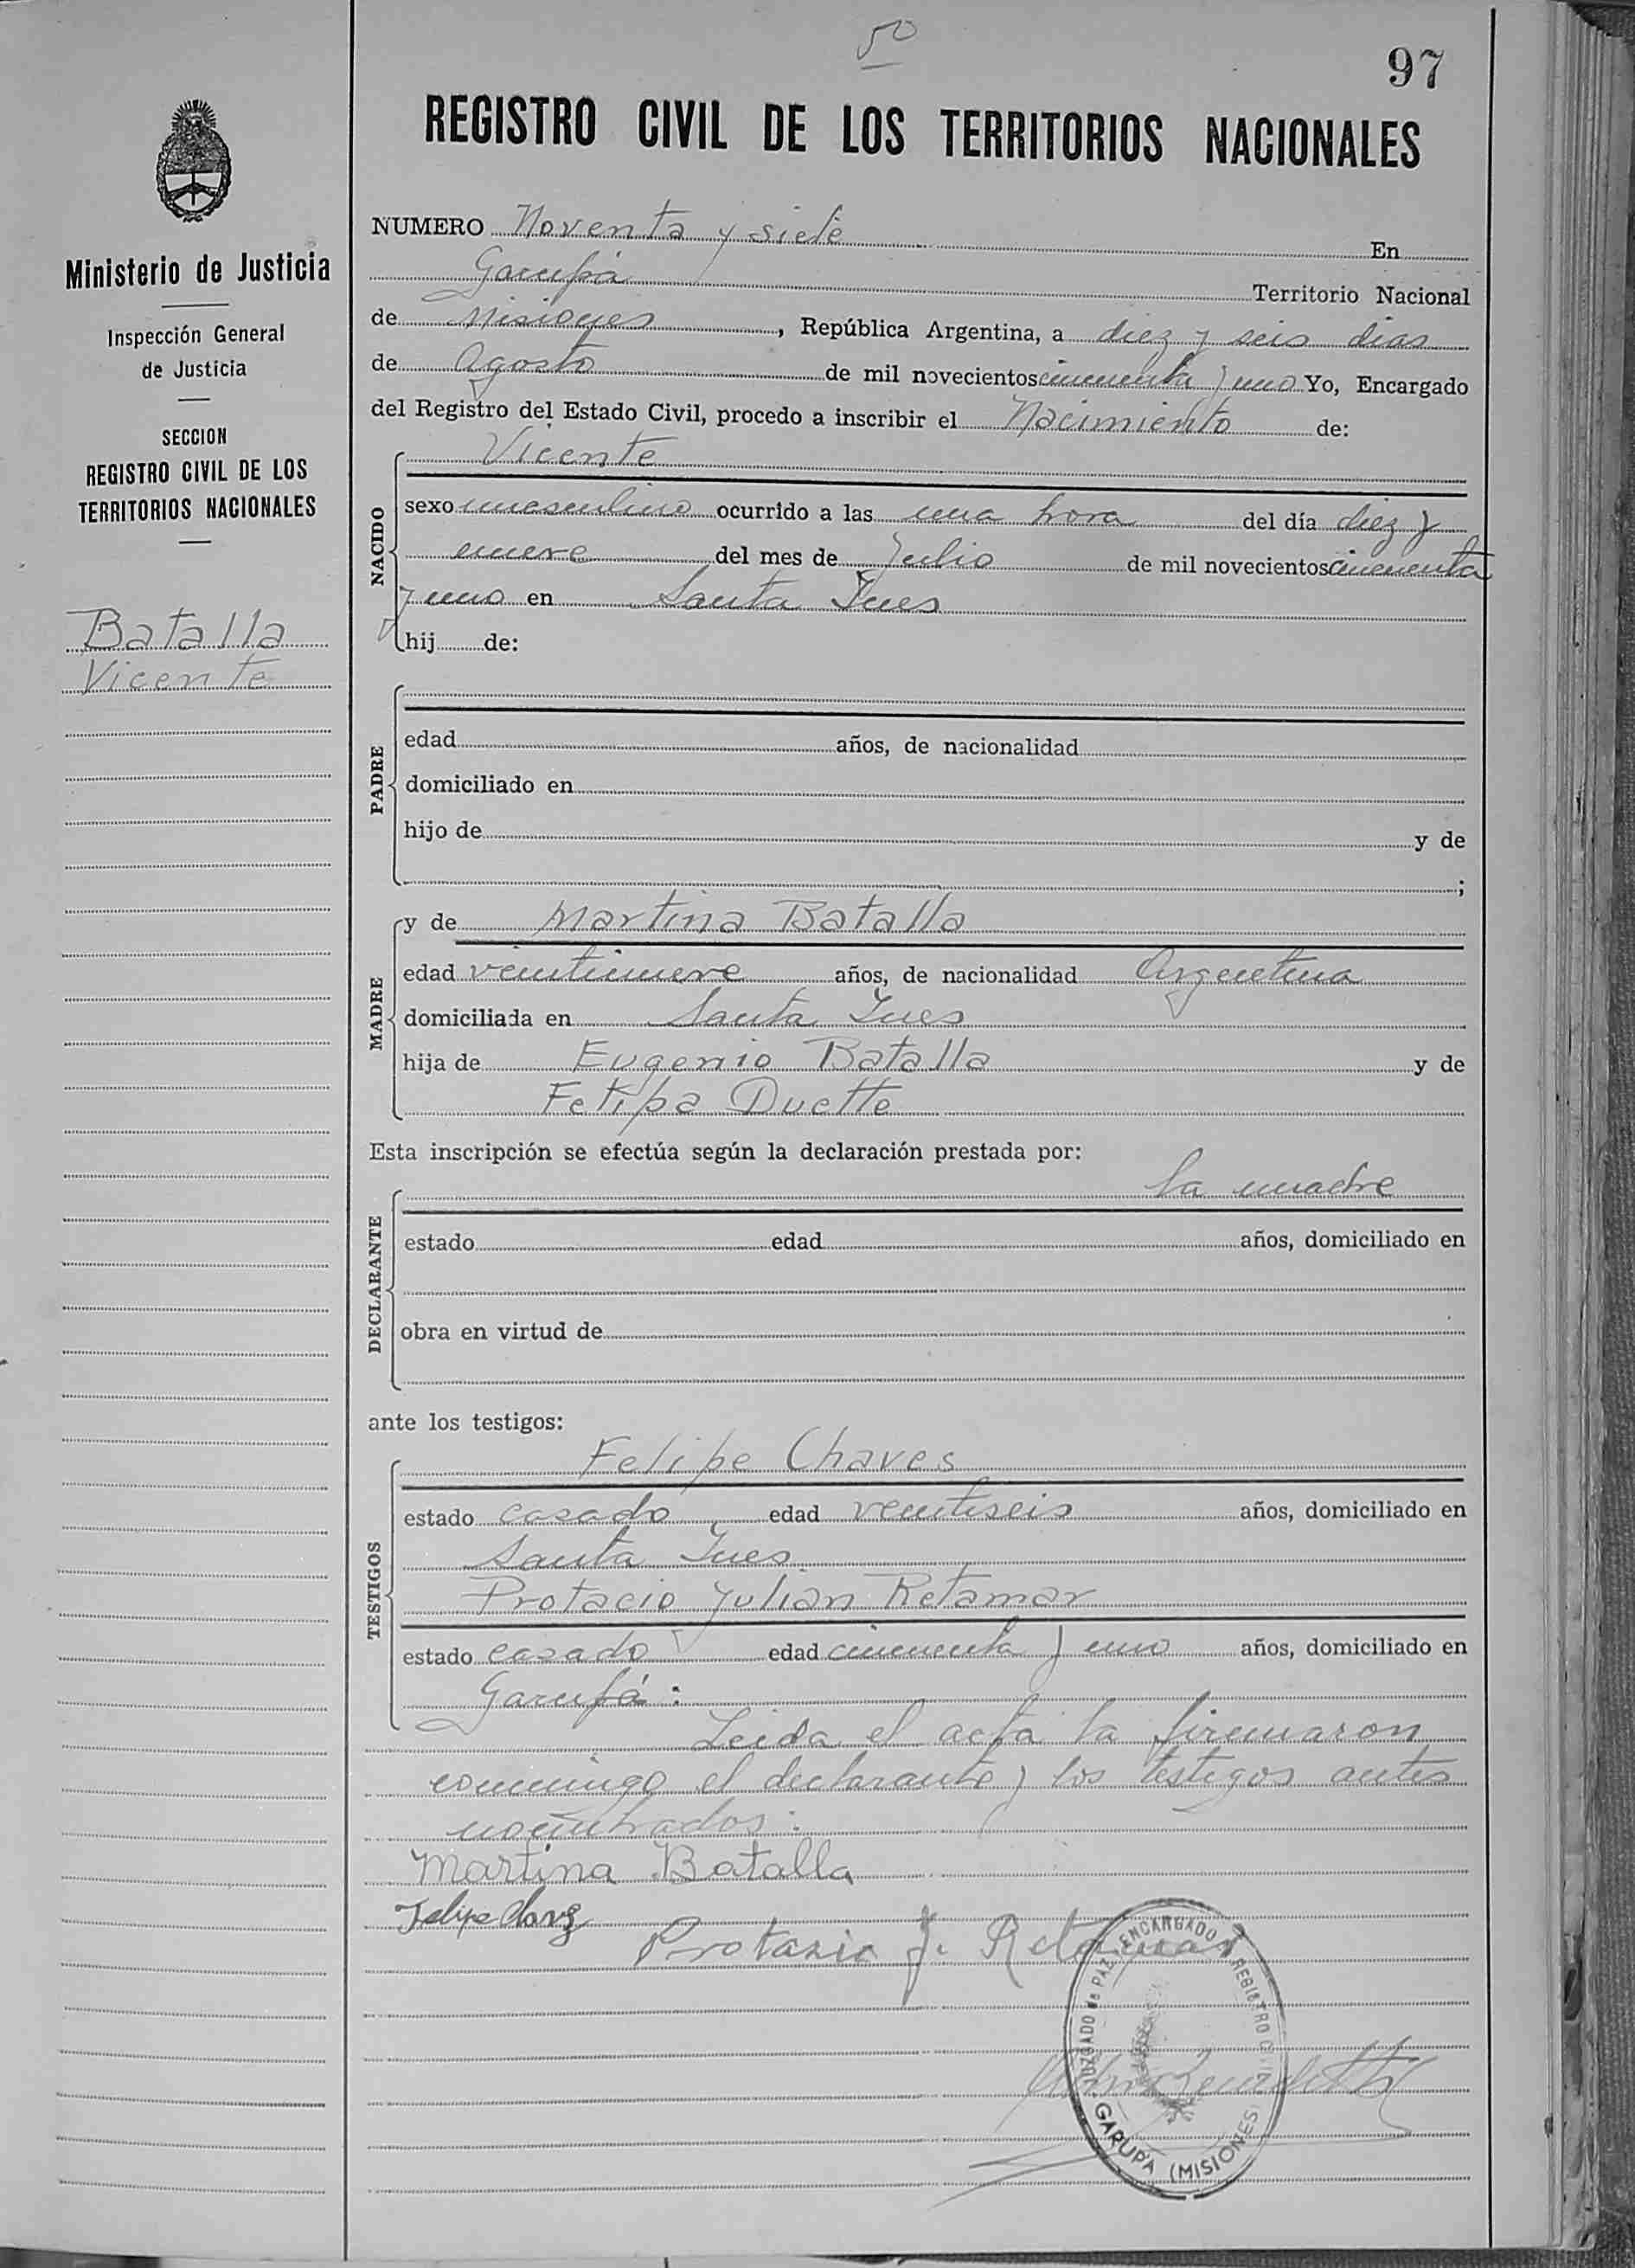 50
97
REGISTRO CIVIL DE LOS TERRITORIOS NACIONALES
Ministerio de Justicia
Inspección General
de Justicia
SECCION
REGISTRO CIVIL DE LOS
TERRITORIOS NACIONALES
Batalla
Vicente
NUMERO Noventa y siete En
Garupá Territorio Nacional
de Misiones, República Argentina, a diez y seis dias
de Agosto de mil novecientos cincuenta y uno Yo, Encargado
del Registro del Estado Civil, procedo a inscribir el Nacimiento de:
NACIDO
Vicente
sexo masculino ocurrido a las una hora del día diez y
nueve del mes de Julio de mil novecientos cincuenta
y uno en Santa Ines
hij de:
PADRE
edad años, de nacionalidad
domiciliado en
hijo de y de
;
MADRE
y de Martina Batalla
edad veintinueve años, de nacionalidad Argentina
domiciliada en Santa Ines
hija de Eugenio Batalla y de
Felipa Duette
Esta inscripción se efectúa según la declaración prestada por:
DECLARANTE
la madre
estado edad años, domiciliado en
obra en virtud de
ante los testigos:
TESTIGOS
Felipe Chaves
estado casado edad veintiseis años, domiciliado en
Santa Ines
Protacio Julian Retamar
estado casado edad cincuenta y uno años, domiciliado en
Garupá:
Leida el acta la firmaron
conmigo el declarante y los testigos antes
nombrados:
Martina Batalla
Felipe
Protasio J. Retamar
JUZGADO DE PAZ ENCARGADO REGISTRO
GARUPA (MISIONES)